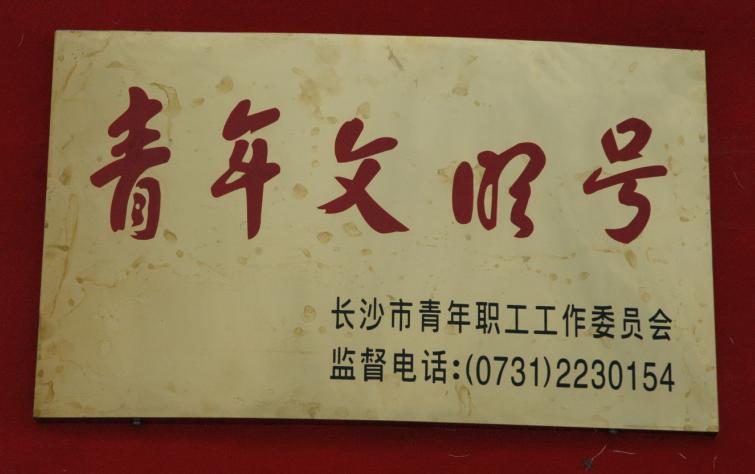 青年文明号
长沙市青年职工工作委员会
监督电话:(0731)2230154